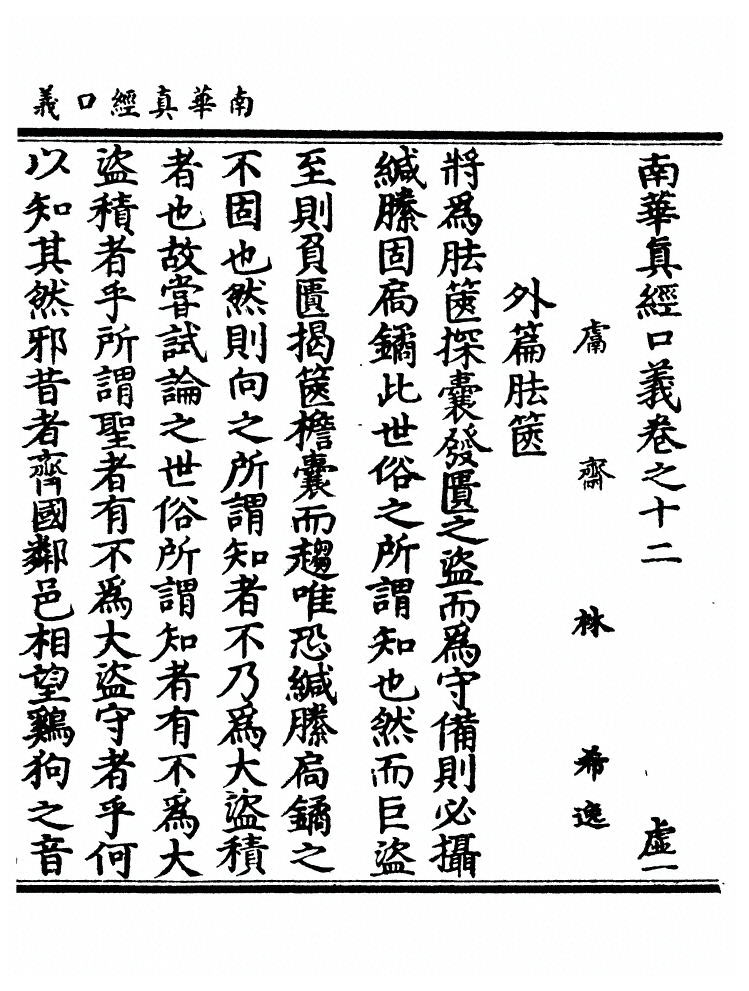 南華真經口義
南華眞經口義卷之十二 虛一
鬳齋林希逸
外篇胠篋
將爲胠篋探囊發匱之盜而爲守備則必攝
緘縢固扃鐍此世俗之所謂知也然而巨盜
至則負匱揭篋檐囊而趨唯恐緘縢扃鐍之
不固也然則向之所謂知者不乃爲大盜積
者也故嘗試論之世俗所謂知者有不爲大
盜積者乎所謂聖者有不爲大盜守者乎何
以知其然邪昔者齊國鄰邑相望鷄狗之音